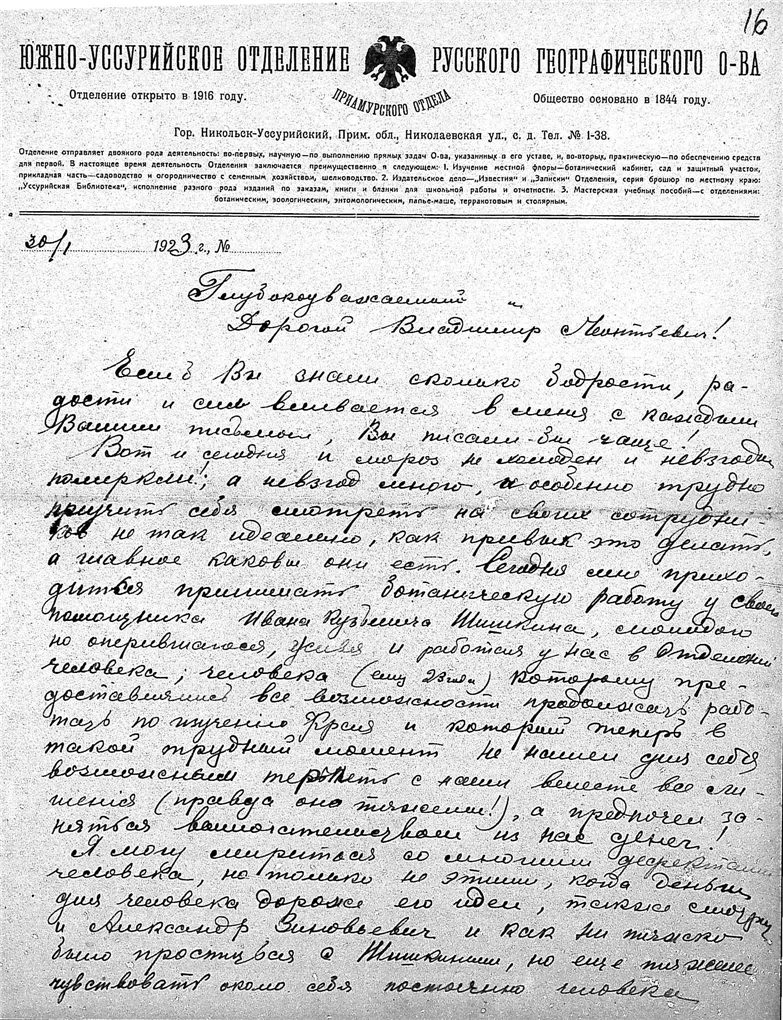 16
ЮЖНО-УССУРИЙСКОЕ ОТДЕЛЕНИЕ РУССКОГО ГЕОГРАФИЧЕСКОГО О-ВА
ПРИАМУРСКОГО ОТДЕЛА
Отделение открыто в 1916 году. Общество основано в 1844 году.
Гор. Никольск-Уссурийский, Прим. обл., Николаевская ул., с. д. Тел. № 1-38.
Отделение отправляет двоякого рода деятельность: во-первых, научную—по выполнению прямых задач О-ва, указанных в его уставе, и, во-вторых, практическую—по обеспечению средств
для первой. В настоящее время деятельность Отделения заключается преимущественно в следующем: 1. Изучение местной флоры—ботанический кабинет, сад и защитный участок,
прикладная часть—садоводство и огородничество с семенным хозяйством, шелководство. 2. Издательское дело—„Известия" и „Записки" Отделения, серия брошюр по местному краю:
„Уссурийская Библиотека", исполнение разного рода изданий по заказам, книги и бланки для школьной работы и отчетности. 3. Мастерская учебных пособий—с отделениями:
ботаническим, зоологическим, энтомологическим, папье-маше, терракотовым и столярным.
30/I 1923 г., №
Глубокоуважаемый и
Дорогой Владимир Леонтьевич!
Если б Вы знали сколько бодрости, ра-
дости и сил вливается в меня с каждым
Вашим письмом, Вы писали-бы чаще!
Вот и сегодня и мороз не холоден и невзгоды
померкли!; а невзгод много, и особенно трудно
приучить себя смотреть на своих сотрудни-
ков не так идеально, как привык это делать,
а главное каковы они есть. Сегодня мне прихо-
дится принимать ботаническую работу у своего
помощника Ивана Кузьмича Шишкина, молодого
но оперившагося, и работая у нас в Отделении
человека; человека (ему 23 года) которому пре-
доставлялись все возможности продолжать рабо-
тать по изучению Края и который теперь в
такой трудный момент не нашел для себя
возможным терпеть с нами вместе все ли-
шения (правда оно тяжелы!), а предпочел за-
няться из нас денег!
Я могу мириться со многими дефектами
человека, но только не этими, когда деньги
для человека дороже его идеи, также смотрит
и Александр Зиновьевич и как ни тяжко
было проститься с Шишкиным, но еще тяжелее
чувствовать около себя постоянно человека